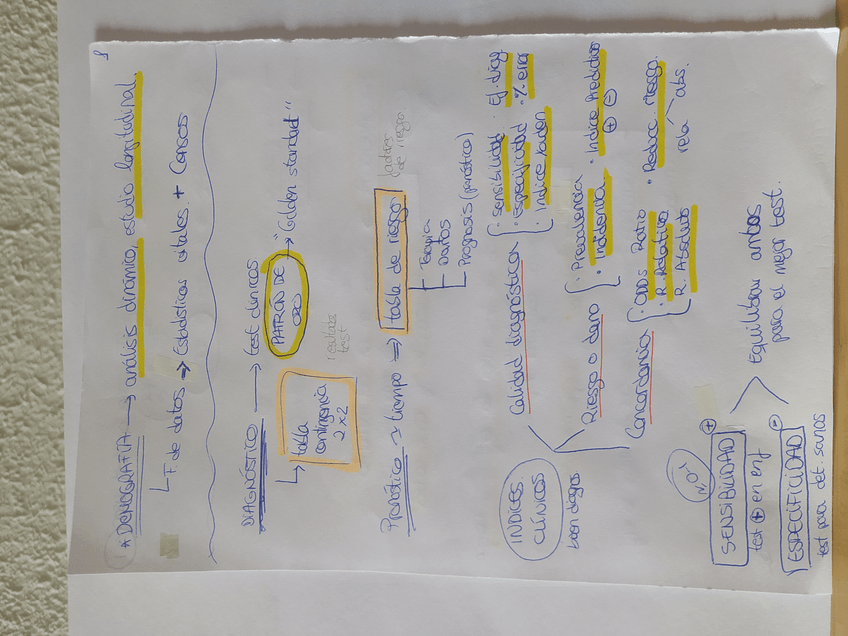 * DEMOGRAFÍA → análisis dinámico, estudio longitudinal.
F. de datos → Estadísticas vitales + Censos
DIAGNÓSTICO → test clínicos
PATRÓN DE ORO → "Golden standard"
tabla contingencia 2x2
resultados test
Pronóstico → tiempo ⇒ tabla de riesgo
factores de riesgo
Terapia
Daños
Prognosis (pronóstico)
INDICES CLÍNICOS
buen diagnos
Calidad diagnóstica
· Sensibilidad
· Especificidad
· Indice Youden
· Ef. diag
· % error
Riesgo o daño
· Prevalencia
· Incidencia
· Indice Predictivo
⊕ ⊖
Concordancia
· Odds Ratio
· R. Relativo
R. Absoluto
· Reducc. riesgo
rela
abs.
NO-1
SENSIBILIDAD ⊕
test ⊕ en enf
ESPECIFICIDAD ⊖
test para det. sanos
Equilibrio ambos
para el mejor test.